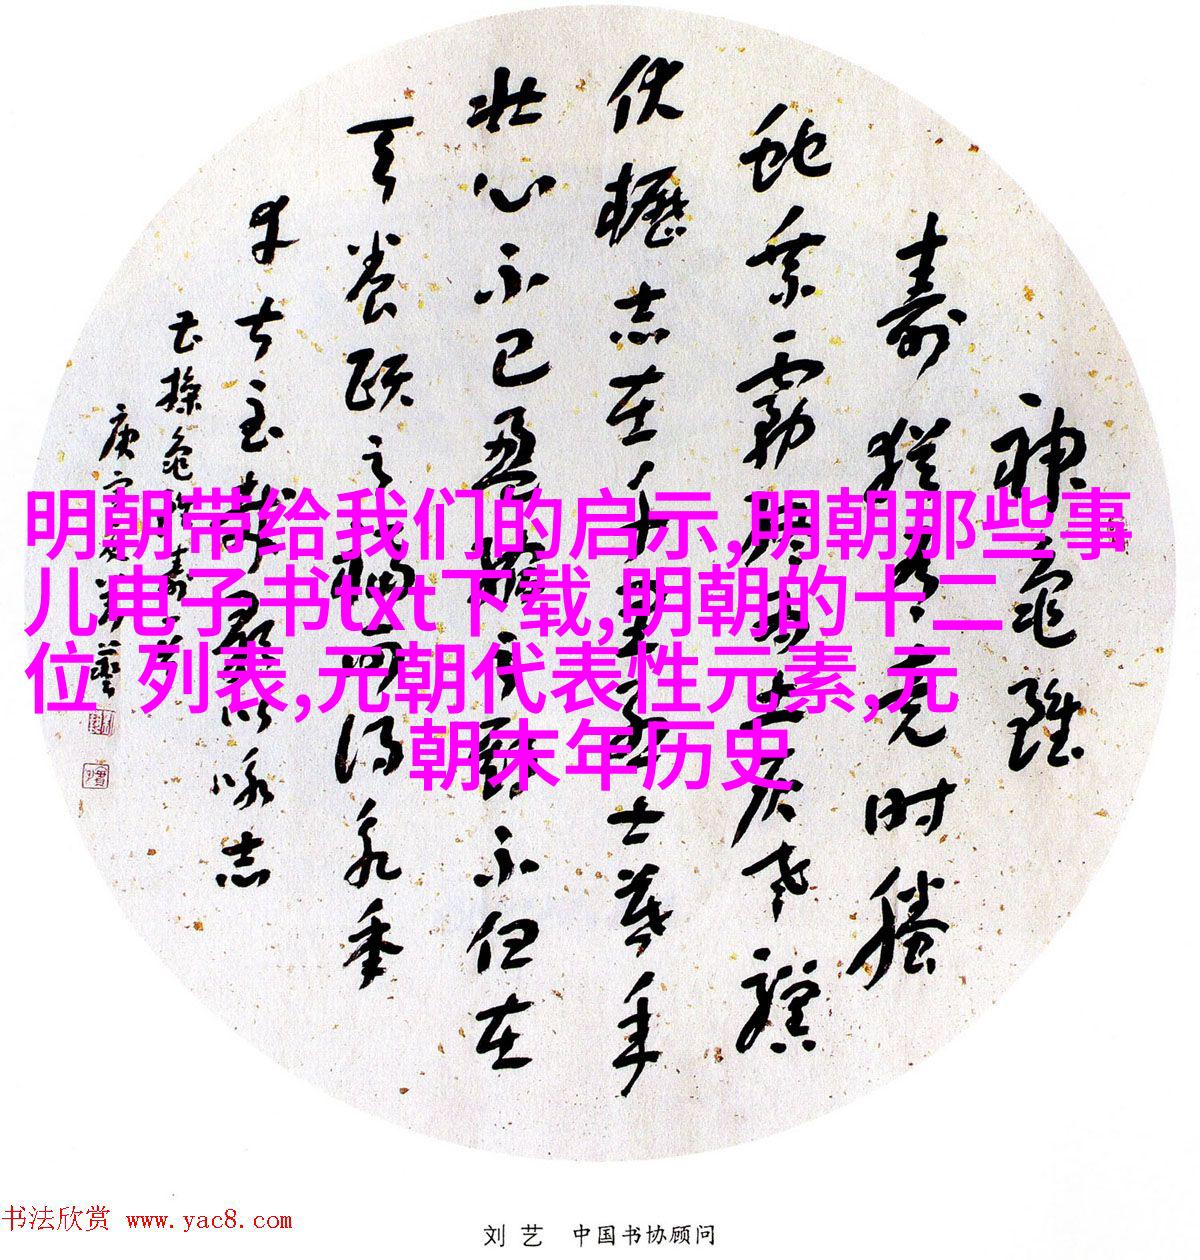 神龜雖
壽猶有竟时騰
蛇乘霧終為土灰老骥
伏櫪志在千里烈士暮年
壮心不已盈縮之期不但在
天養頤之福可得永年
幸甚至哉歌以咏志
曹操龜雖壽
庚寅
藝
明朝带给我们的启示,明朝那些事
儿电子书txt下载,明朝的十二
位 列表,元朝代表性元素,元
朝末年历史
书法欣赏 www.yac8.com
刘艺 中国书协顾问